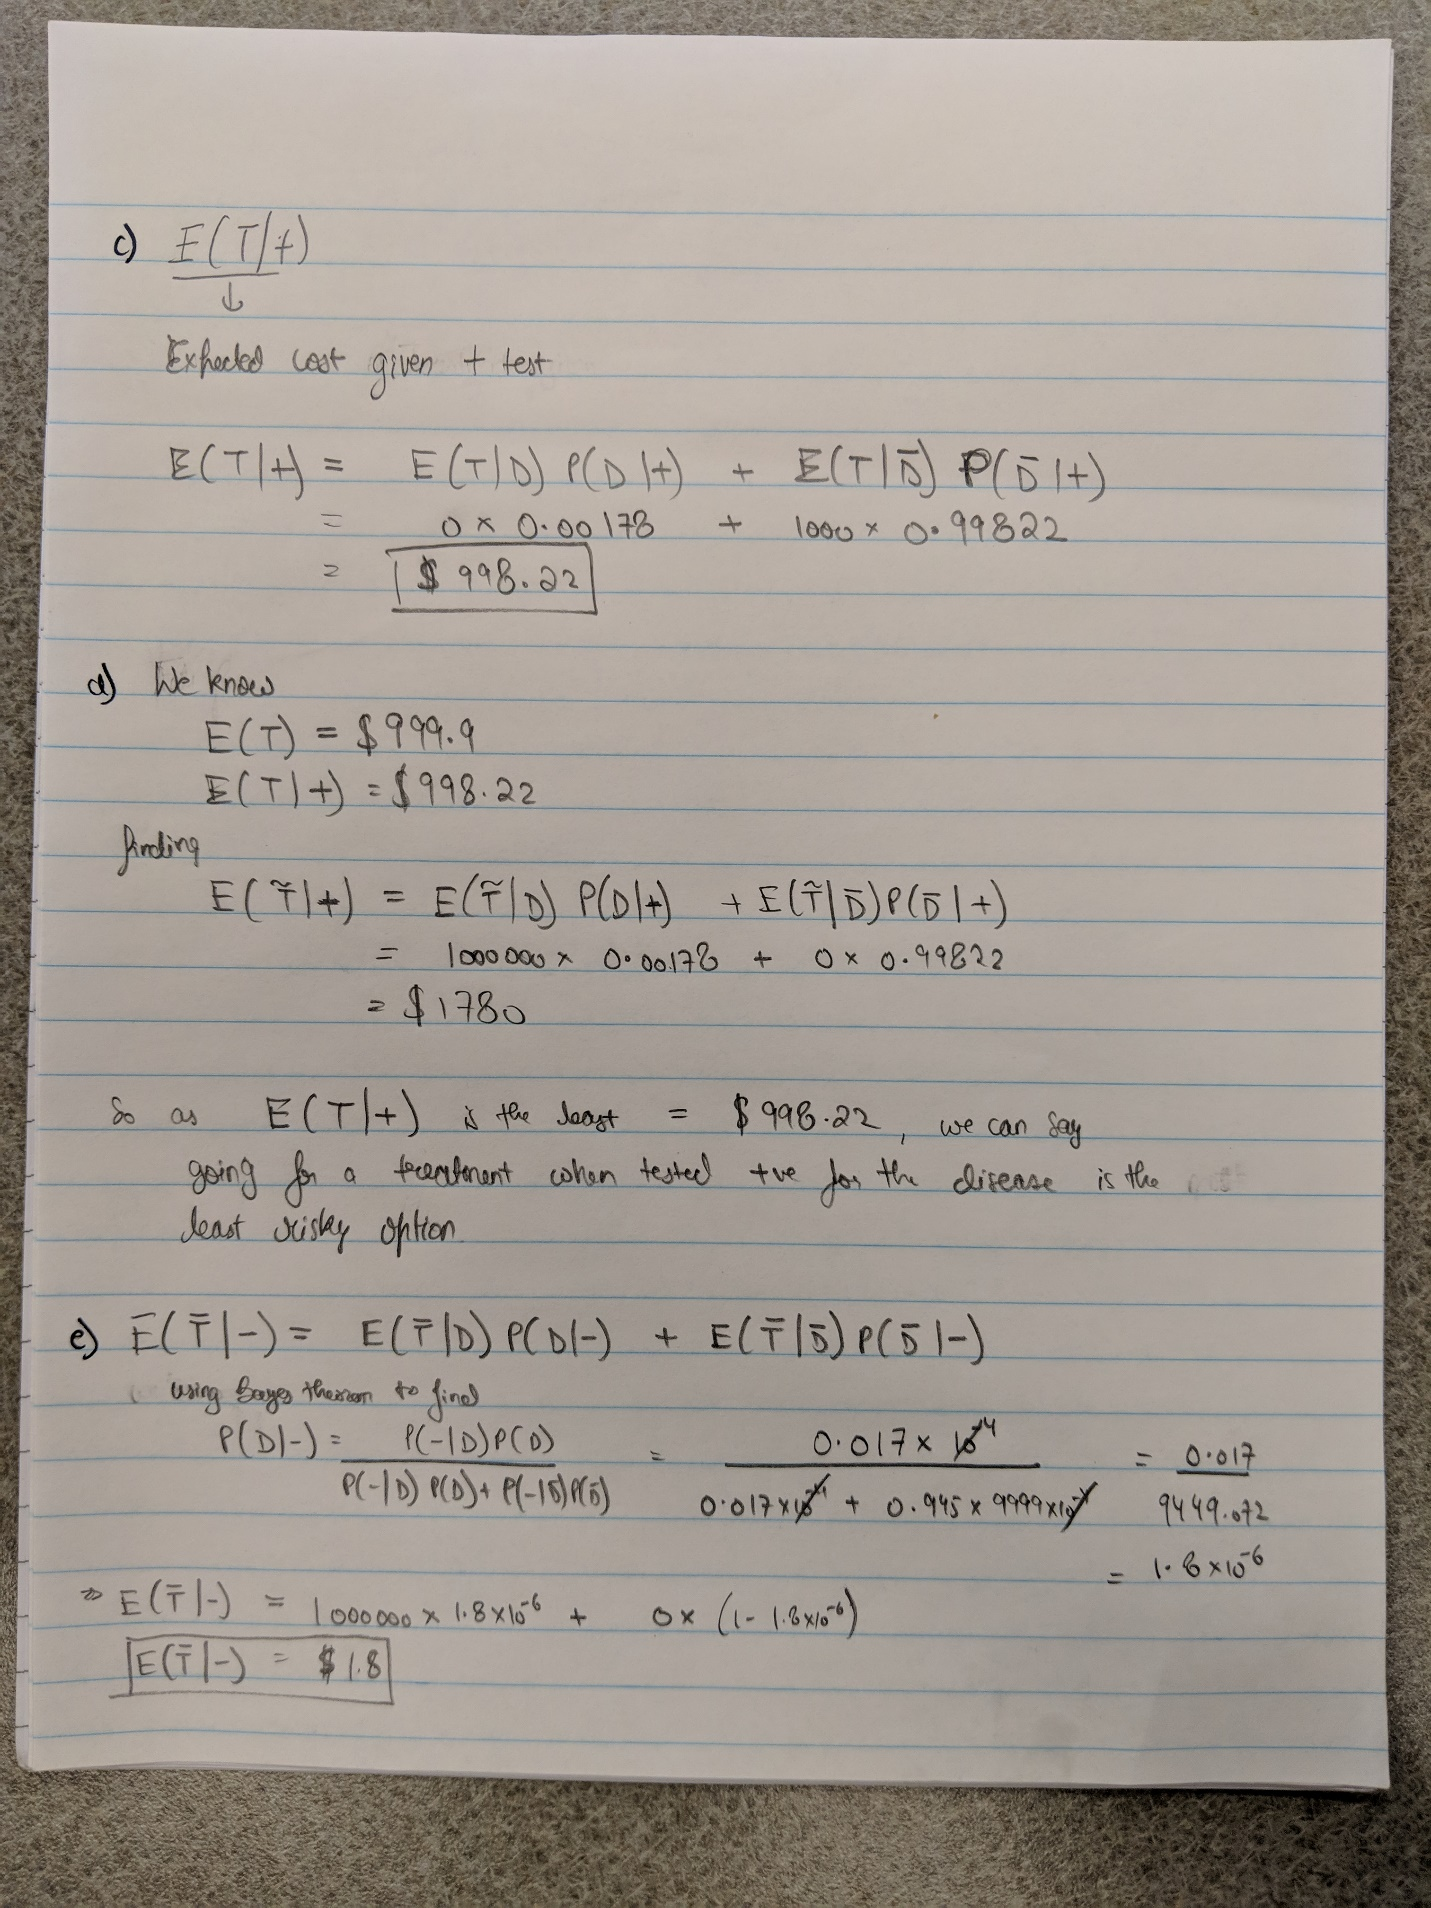 c) E(T/+)
↓
Expected cost given + test
E(T|+) = E(T|D) P(D|+) + E(T|D̄) P(D̄|+)
= 0 × 0.00178 + 1000 × 0.99822
= $ 998.22
d) We know
E(T) = $999.9
E(T|+) = $998.22
finding
E(T̃|+) = E(T̃|D) P(D|+) + E(T̃|D̄) P(D̄|+)
= 1000000 × 0.00178 + 0 × 0.99822
= $1780
So as E(T|+) is the least = $998.22, we can say
going for a treatment when tested +ve for the disease is the
least risky option
e) E(T̄|-) = E(T̄|D) P(D|-) + E(T̄|D̄) P(D̄|-)
using Bayes theorem to find
P(D|-) = P(-|D)P(D) / P(-|D) P(D) + P(-|D̄)P(D̄) = 0.017 × 10⁻⁴ / 0.017×10⁻⁴ + 0.945 × 9999×10⁻⁴ = 0.017 / 9449.072
= 1.8 ×10⁻⁶
⇒ E(T̄|-) = 1000000 × 1.8×10⁻⁶ + 0× (1- 1.8×10⁻⁶)
E(T̄|-) = $ 1.8